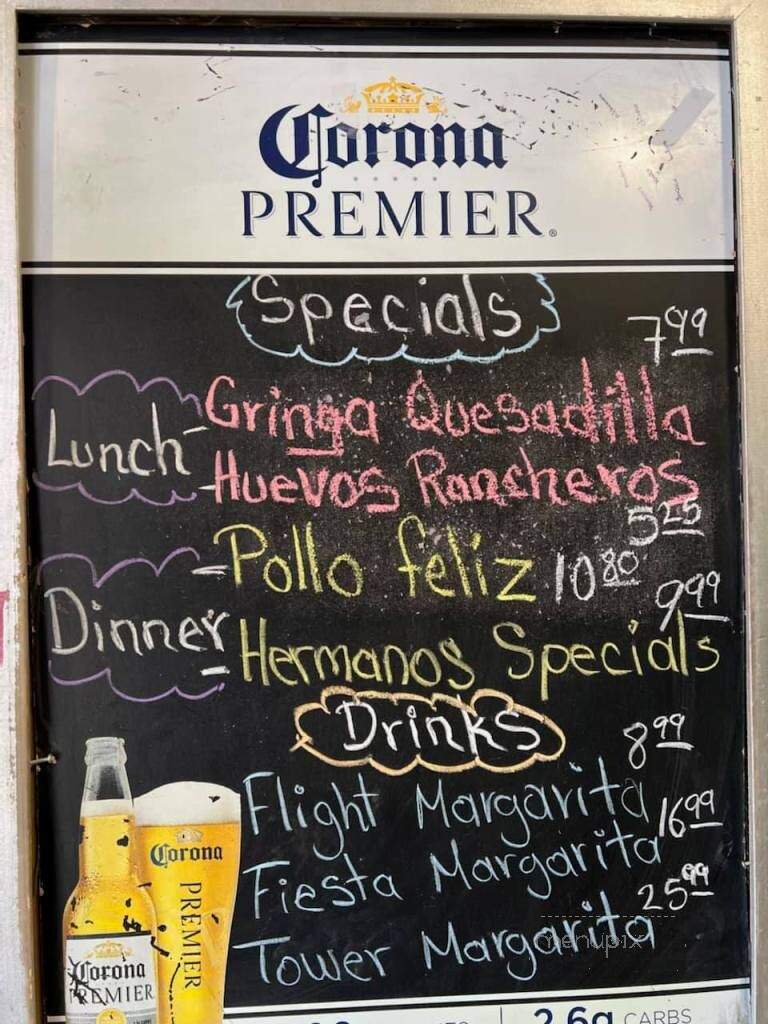 Corona
PREMIER®
Specials
7.99
Lunch - Gringa Quesadilla
- Huevos Rancheros
5.25
- Pollo feliz 10.80
Dinner
9.99
- Hermanos Specials
Drinks
8.99
Flight Margarita
16.99
Fiesta Margarita
25.99
Tower Margarita
Corona
PREMIER
Corona
PREMIER
menupix
2.6g CARBS